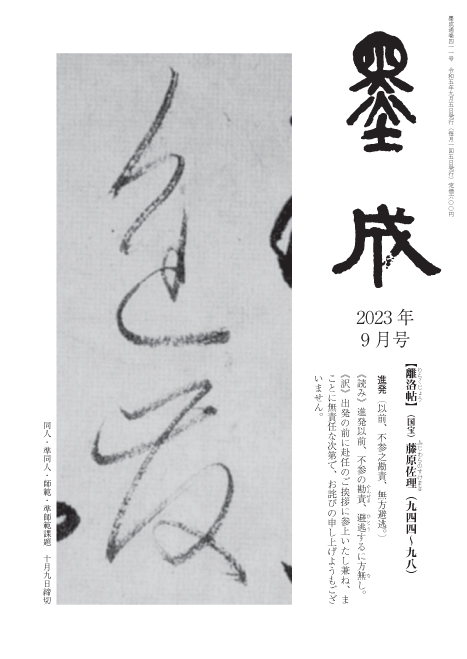 墨成通巻四一一号　令和五年九月五日発行（毎月一回五日発行）定価六〇〇円
墨成
2023 年
9 月号
【離洛帖】（国宝）藤原佐理（九四四～九八）
進発（以前、不参之勘責、無方避逃。）
《読み》進発以前、不参の勘責、避逃するに方無し。
《訳》出発の前に赴任のご挨拶に参上いたし兼ね、ま
ことに無責任な次第で、お詫びの申し上げようもござ
いません。
進発
同人・準同人・師範・準師範課題　十月九日締切